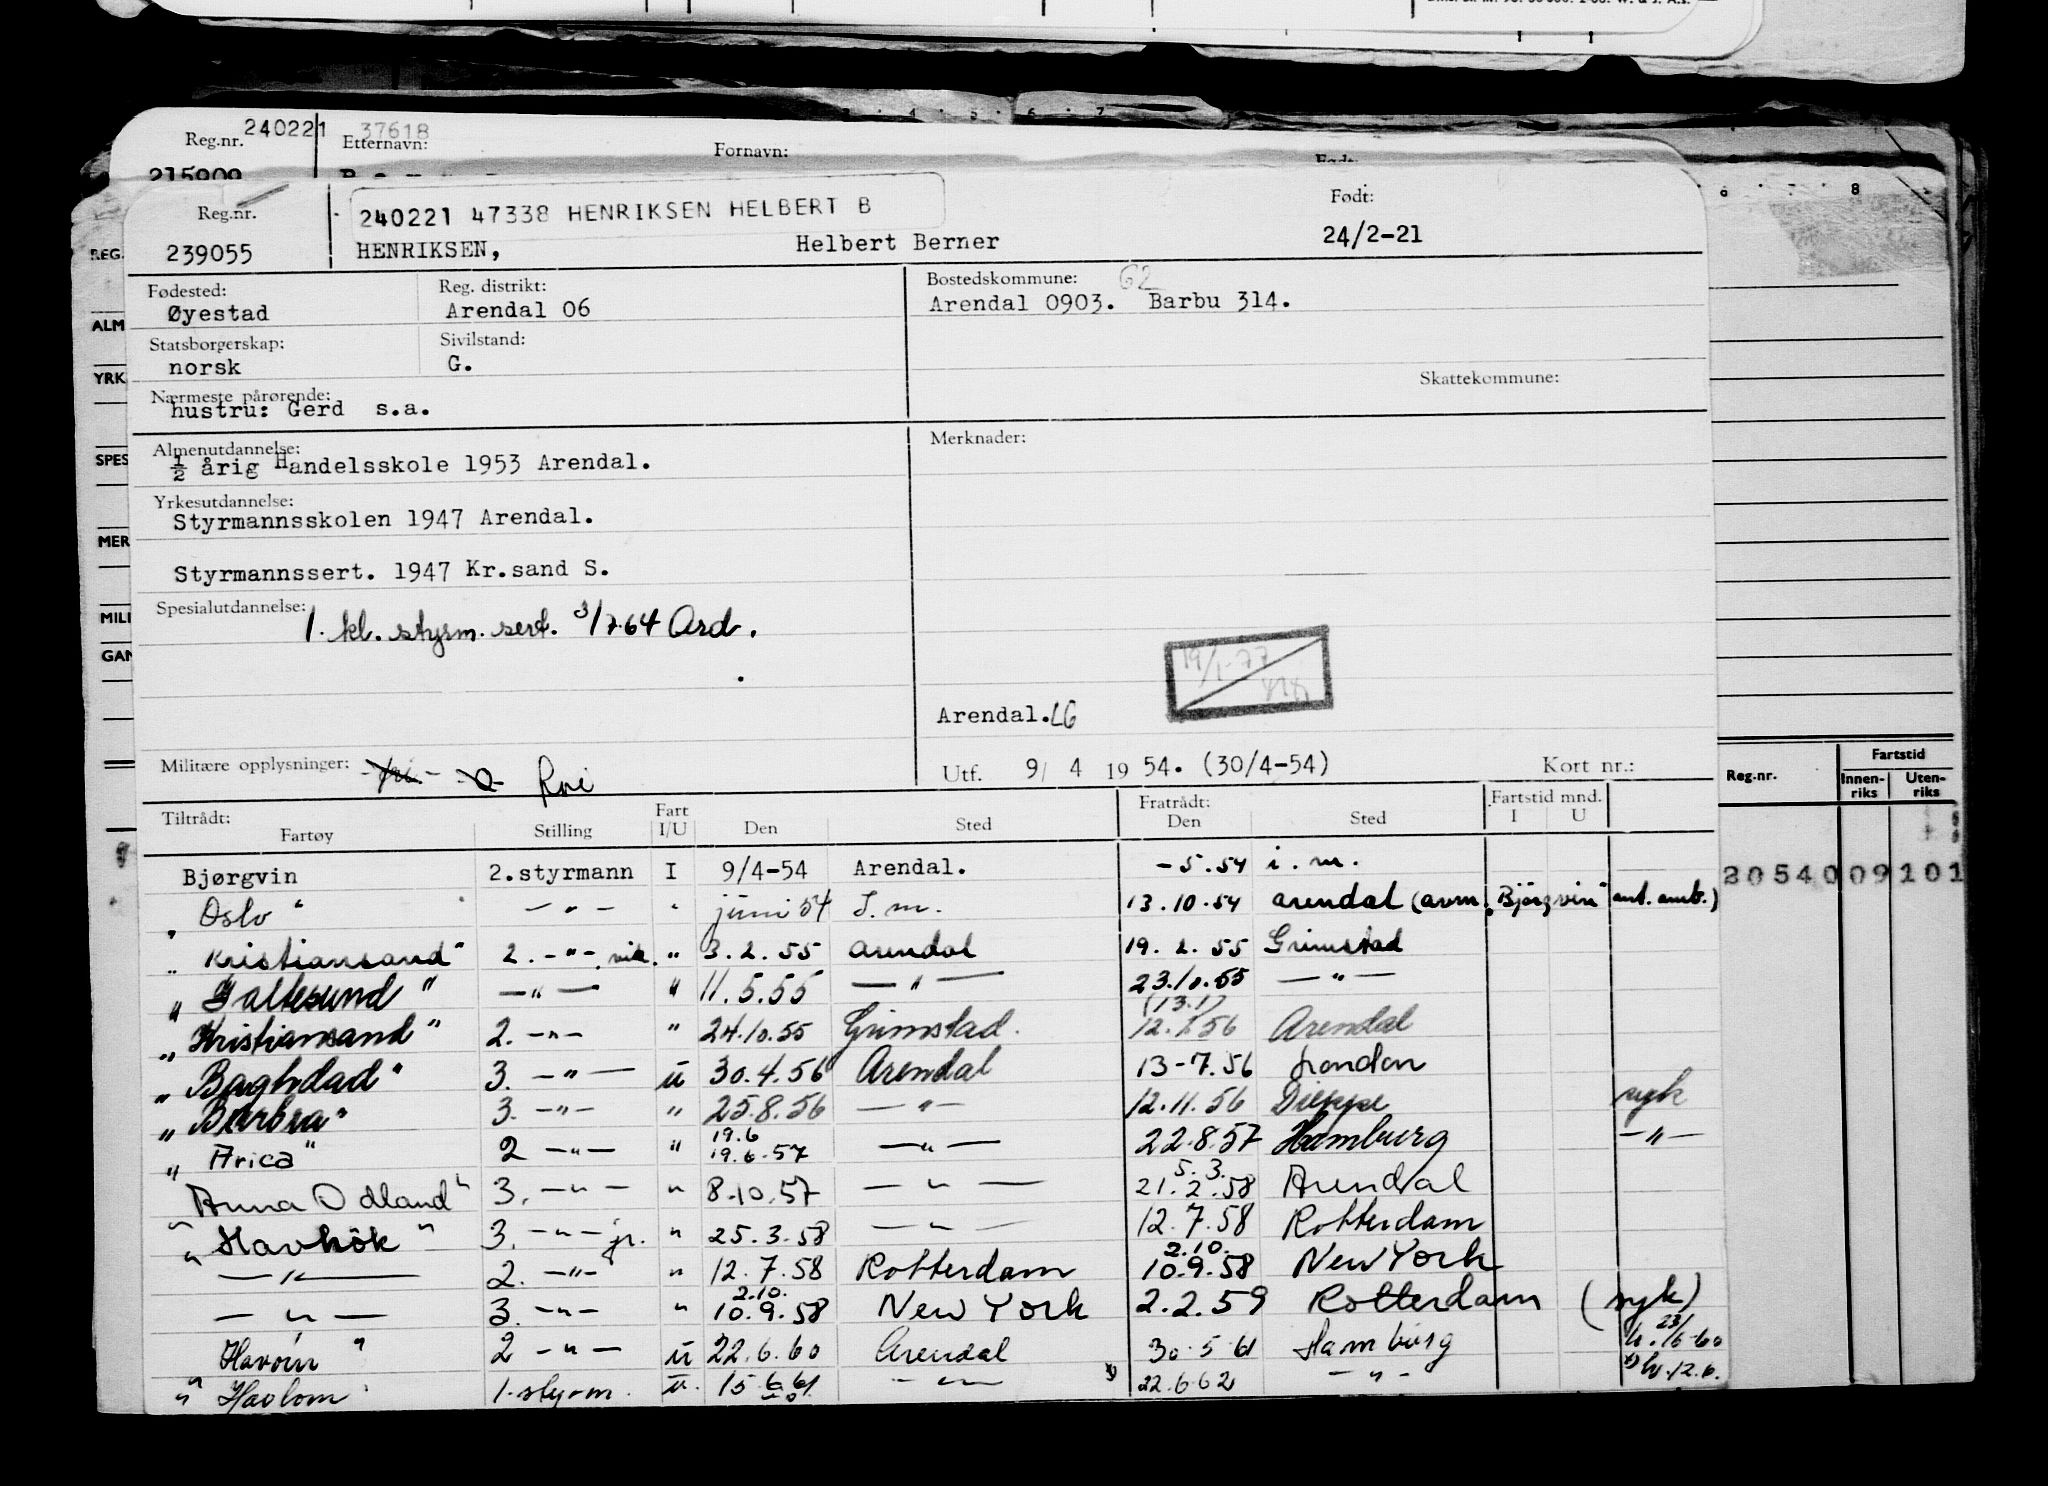 Reg.nr. 240221 37618
Etternavn: Fornavn:
215909
Reg.nr. 240221 47338 HENRIKSEN HELBERT B Født:
239055 HENRIKSEN, Helbert Berner 24/2-21
Fødested: Reg. distrikt: Bostedskommune: 62
Øyestad Arendal 06 Arendal 0903. Barbu 314.
Statsborgerskap: Sivilstand:
norsk G.
Skattekommune:
Nærmeste pårørende:
hustru: Gerd s.a.
Almenutdannelse: Merknader:
½ årig Handelsskole 1953 Arendal.
Yrkesutdannelse:
Styrmannsskolen 1947 Arendal.
Styrmannssert. 1947 Kr.sand S.
Spesialutdannelse:
1. kl. styrm. sert. 3/7.64 Ard.
19/1-77
Arendal. LG
Militære opplysninger: Utf. 9/ 4 19 54. (30/4-54) Kort nr.:
Tiltrådt: Fart Fratrådt: Fartstid mnd.
Fartøy Stilling I/U Den Sted Den Sted I U
Bjørgvin 2.styrmann I 9/4-54 Arendal. -5.54 i.m.
"Oslo" — " — " juni 54 I.m. 13.10.54 Arendal (avm. "Bjørgvin" ant. amb.)
"Kristiansand" 2. -"- vik. " 3.2.55 Arendal 19.2.55 Grimstad
"Galtesund" — " — " 11.5.55 — " — 23.10.55 — " —
(13.1)
"Kristiansand" 2. -"- " 24.10.55 Grimstad. 12.1.56 Arendal
"Baghdad" 3. — " — U 30.4.56 Arendal 13-7.56 London
"Barbra" 3. — " — " 25.8.56 — " — 12.11.56 Dieppe syk
19.6
"Arica" 2 — " — " 19.6.57 — " — 22.8.57 Hamburg — " —
5.3.
Anna Odland" 3. — " — " 8.10.57 — " — 21.2.58 Arendal
"Havhök" 3. — " — jr. " 25.3.58 — " — 12.7.58 Rotterdam
2.10.
— " — 2. — " — " 12.7.58 Rotterdam 10.9.58 New York
2.10.
— " — 3. — " — " 10.9.58 New York 2.2.59 Rotterdam (syk)
Havörn" 2 — " — U 22.6.60 Arendal 30.5.61 Hamburg h. 23/6-60
"Havlom 1.styrm. U. 15.6.61 — " — 22.6.62 — " — h.12.6.
REG.
ALM
YRK
SPES
MER
MILI
GAN
Reg.nr. Fartstid
Innenriks Utenriks
20540 09101